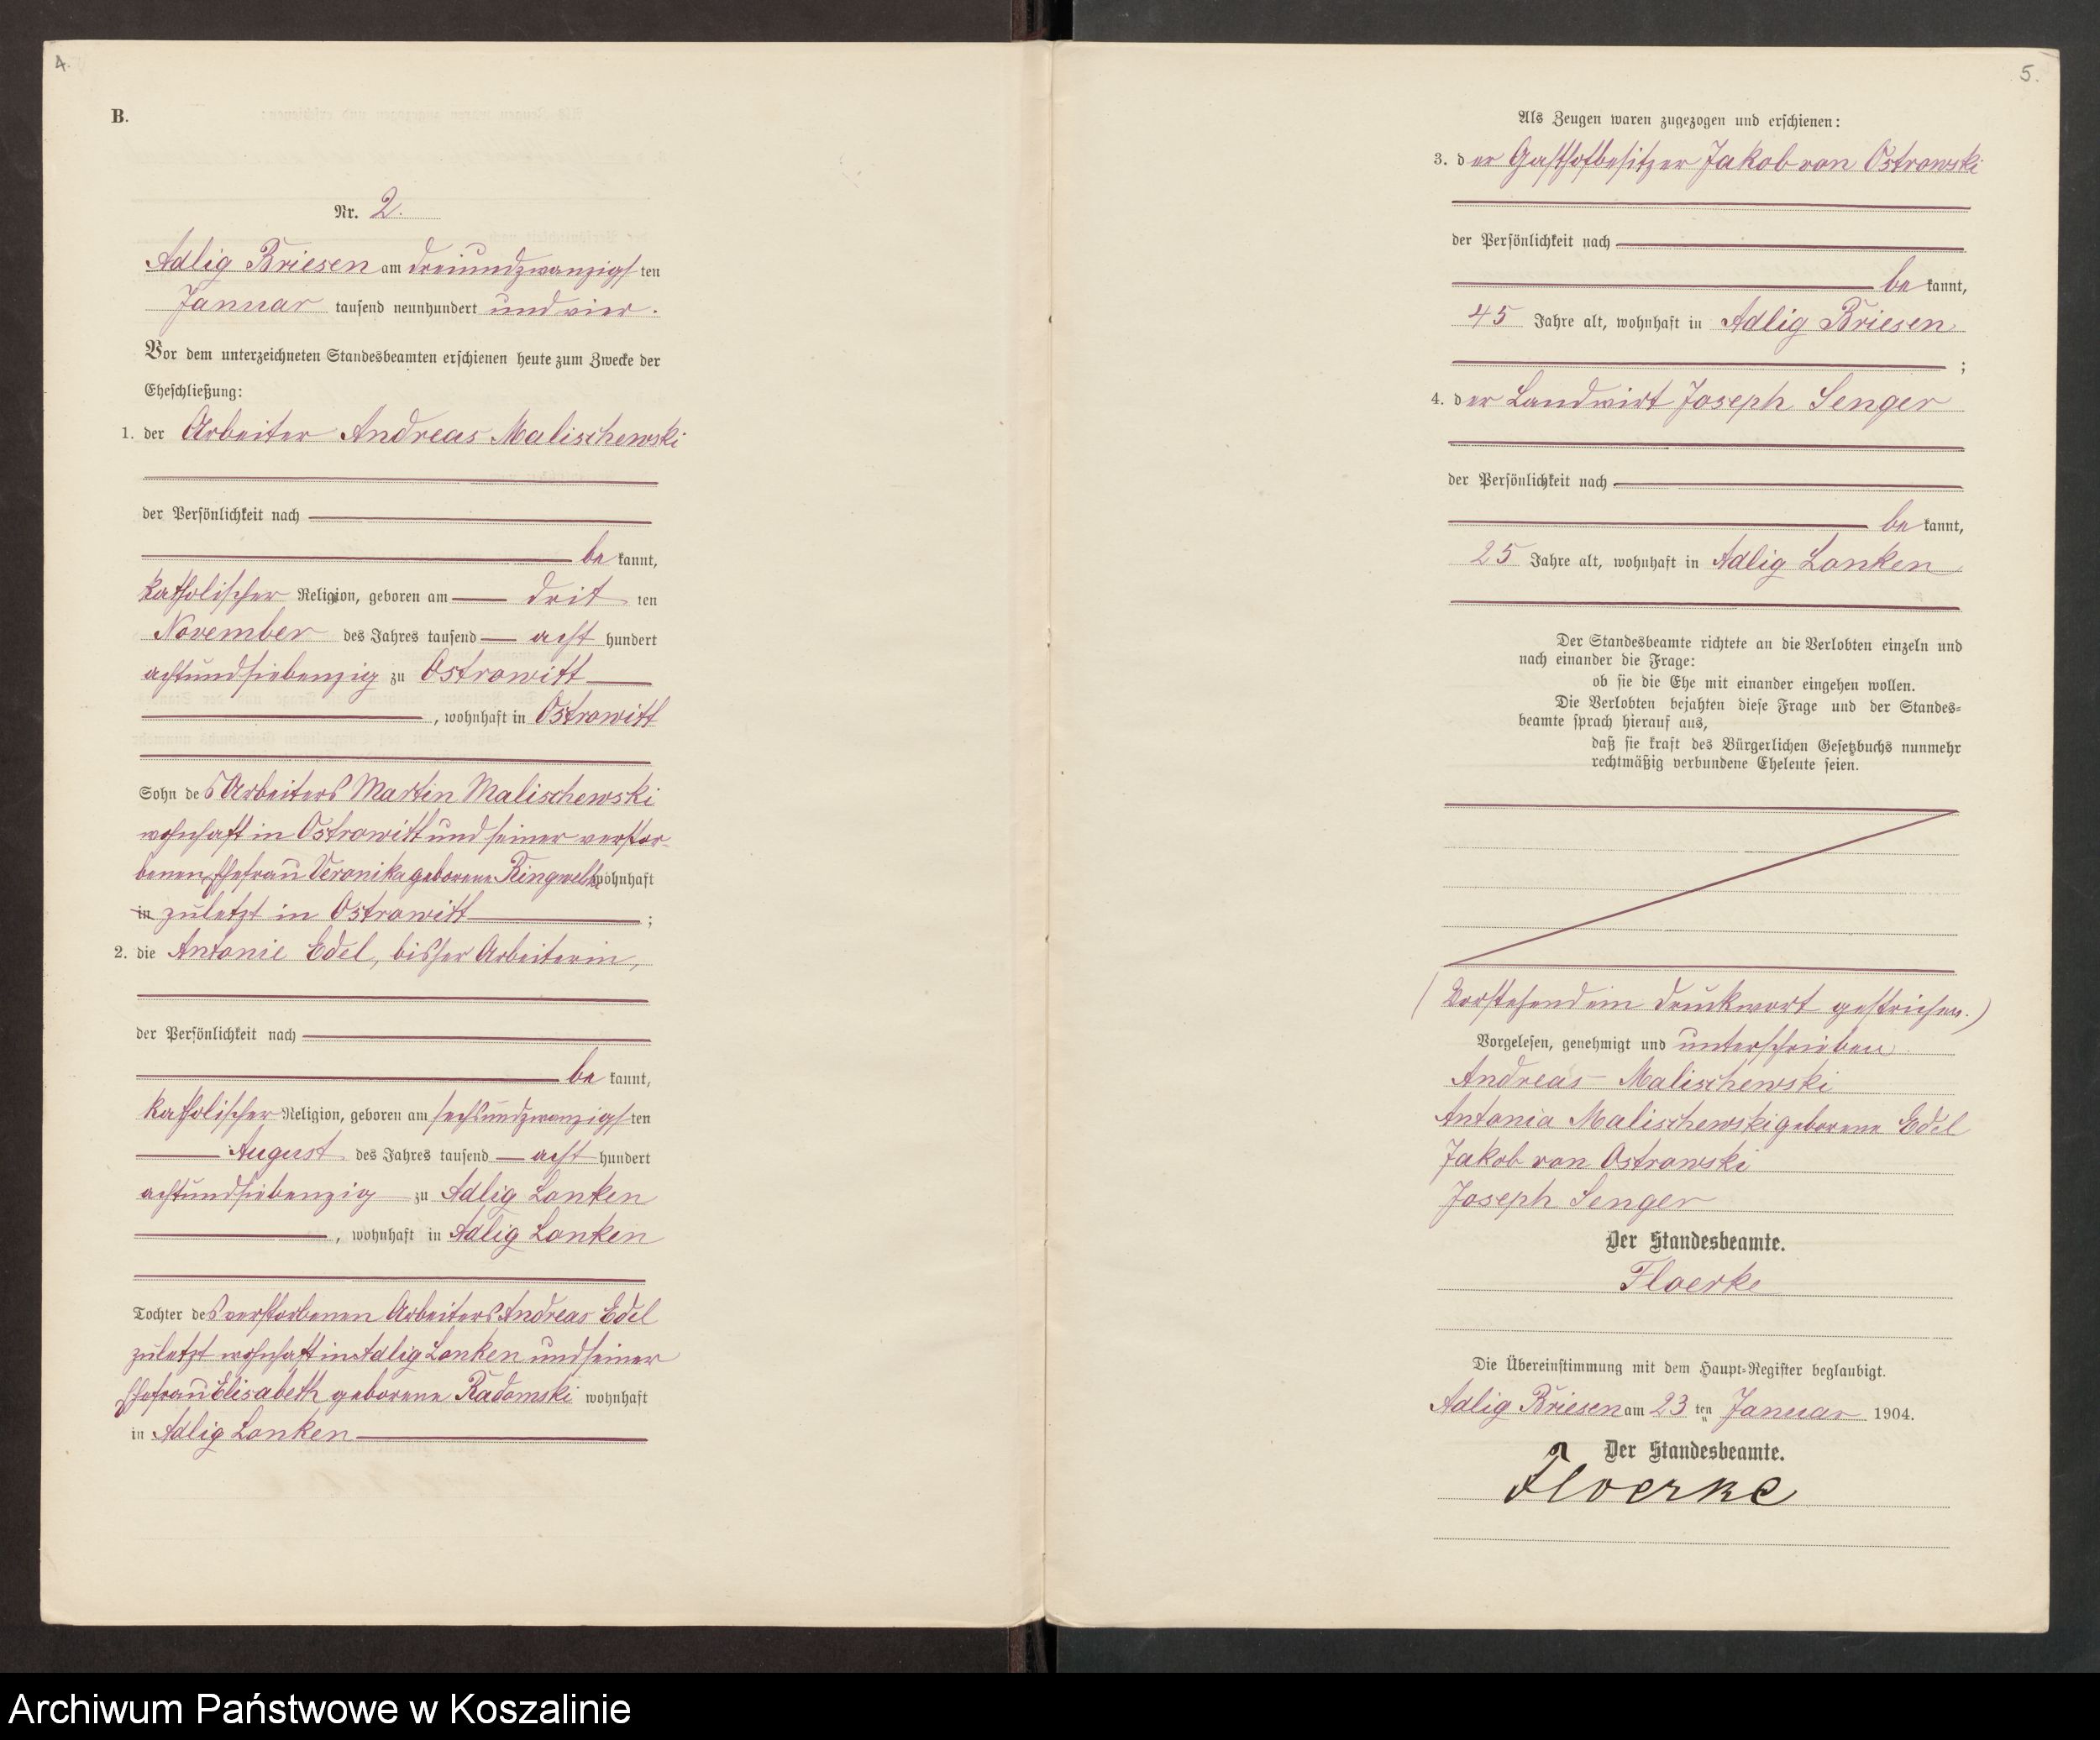 4.
B.
Nr. 2.
Adlig Briesen am dreiundzwanzigsten
Januar tausend neunhundert und vier.
Vor dem unterzeichneten Standesbeamten erschienen heute zum Zwecke der
Eheschließung:
1. der Arbeiter Andreas Malischewski
der Persönlichkeit nach
bekannt,
katholischer Religion, geboren am dritten
November des Jahres tausend achthundert
achtundsiebenzig zu Ostrowitt
, wohnhaft in Ostrowitt
Sohn des Arbeiters Martin Malischewski
wohnhaft in Ostrowitt und seiner verstor-
benen Ehefrau Veronika geborene Ringwelski wohnhaft
in zuletzt in Ostrowitt ;
2. die Antonie Edel, bisher Arbeiterin,
der Persönlichkeit nach
bekannt,
katholischer Religion, geboren am sechsundzwanzigsten
August des Jahres tausend achthundert
achtundsiebenzig zu Adlig Lonken
, wohnhaft in Adlig Lonken
Tochter des verstorbenen Arbeiters Andreas Edel
zuletzt wohnhaft in Adlig Lonken und seiner
Ehefrau Elisabeth geborene Radomski wohnhaft
in Adlig Lonken
5.
Als Zeugen waren zugezogen und erschienen:
3. der Gasthofbesitzer Jakob von Ostrowski
der Persönlichkeit nach
bekannt,
45 Jahre alt, wohnhaft in Adlig Briesen
;
4. der Landwirt Joseph Senger
der Persönlichkeit nach
bekannt,
25 Jahre alt, wohnhaft in Adlig Lonken
Der Standesbeamte richtete an die Verlobten einzeln und
nach einander die Frage:
ob sie die Ehe mit einander eingehen wollen.
Die Verlobten bejahten diese Frage und der Standes-
beamte sprach hierauf aus,
daß sie kraft des Bürgerlichen Gesetzbuchs nunmehr
rechtmäßig verbundene Eheleute seien.
(Vorstehend ein Druckwort gestrichen.)
Vorgelesen, genehmigt und unterschrieben
Andreas Malischewski
Antonia Malischewski geborene Edel
Jakob von Ostrowski
Joseph Senger
Der Standesbeamte.
Floerke
Die Übereinstimmung mit dem Haupt-Register beglaubigt.
Adlig Briesen am 23ten Januar 1904.
Der Standesbeamte.
Floerke
Archiwum Państwowe w Koszalinie